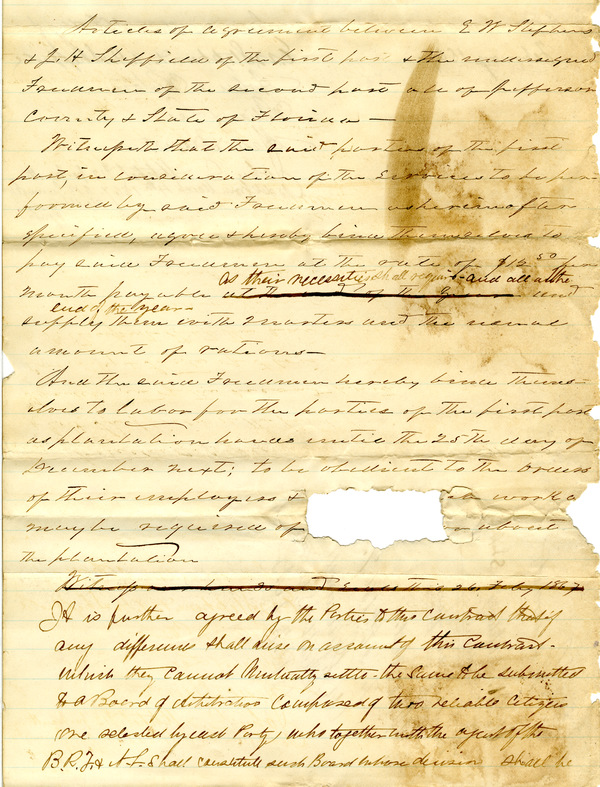 Articles of agreement between E W Stephens
& J. H Sheffield of the first part & the undersigned
Freedmen of the second part all of Jefferson
County & State of Florida —
Witnesseth that the said parties of the first
part, in consideration of the services to be per-
formed by said Freedmen as hereinafter
specified, agree & hereby bind themselves to
pay said Freedmen at the rate of $12 50 per
as their necessities shall require and all at the
month payable at the end of the year and
end of the year
supply them with quarters and the usual
amount of rations —
And the said Freedmen hereby bind thems-
elves to labor for the parties of the first part
as plantation hands until the 25th day of
December next; to be obedient to the orders
of their employers & work as
may be required of about
the plantation
Witness our hands and seals this 26 Feby 1867
It is further agreed by the Parties to this Contract that if
any difference shall arise on account of this Contract
which they cannot Mutually settle - the same to be submitted
to a Board of Arbitrators composed of two reliable Citizens
one selected by each Party, who together with the agent of the
B. R. F. & A L. shall constitute such Board whose decision shall be